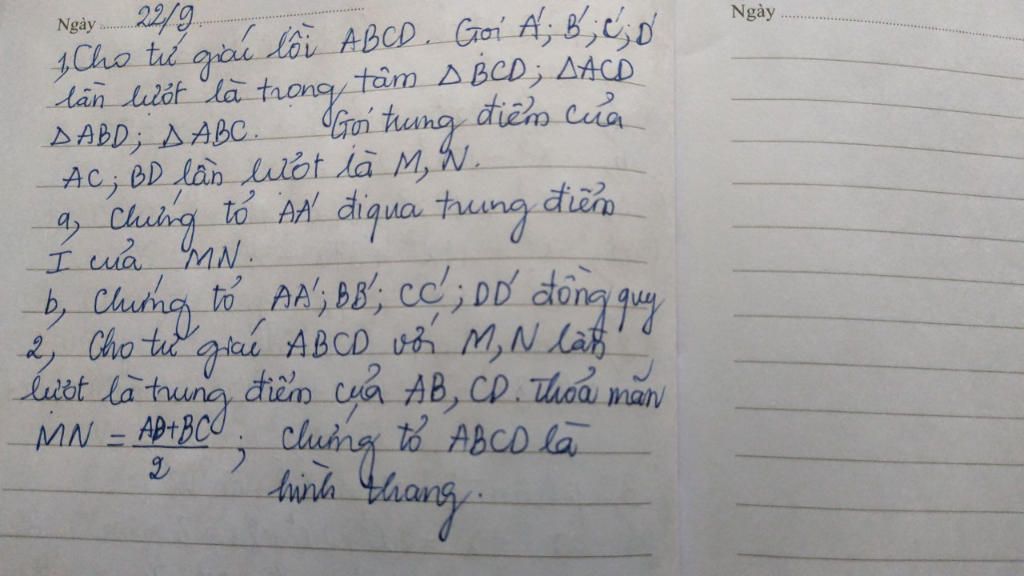 Ngày 22/9.
Ngày
1, Cho tứ giác lồi ABCD. Gọi A'; B'; C'; D'
lần lượt là trọng tâm △BCD; △ACD
△ABD; △ABC. Gọi trung điểm của
AC; BD lần lượt là M, N.
a, Chứng tỏ AA' đi qua trung điểm
I của MN.
b, Chứng tỏ AA'; BB'; CC'; DD' đồng quy
2, Cho tứ giác ABCD với M, N lần
lượt là trung điểm của AB, CD. Thỏa mãn
MN = AD+BC/2; Chứng tỏ ABCD là
hình thang.